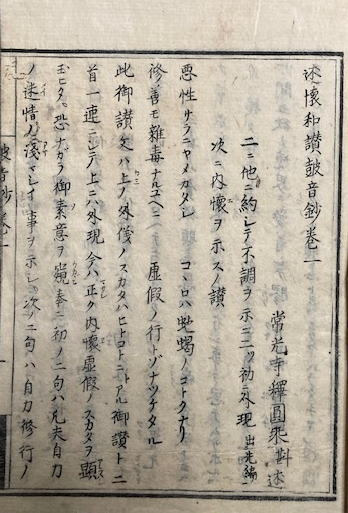 述懷和讃皷音鈔卷一
常光寺釋圓爾斟述
二ニ他ニ約シテ不調ヲ示ニ二ツ初ニ外現出先編ニ
次ニ内懷ヲ示スノ讃
惡性サラニヤメカタシ コヽロハ虵蝎ノコトクナリ
修善モ雜毒ナルユヘニ 虛假ノ行トゾナツケタル
此御讃文ハ上ノ外儀ノスカタハヒトコトニトアル御讃ト二
首一連ニシテ上ニハ外現今ハ正ク内懷虛假ノスカタヲ顯シ
玉ヒタリ恐ナカラ御素意ヲ窺奉ニ初ノ二句ハ凡夫自力
ノ迷情ノ淺マシイ事ヲ示シ次ノ二句ハ自力修行ノ
皷音鈔卷一